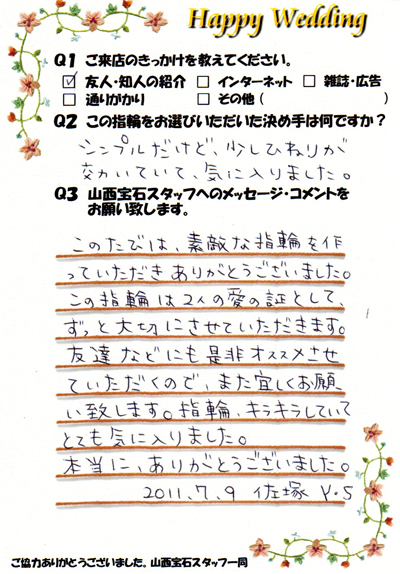 Happy Wedding
Q1 ご来店のきっかけを教えてください。
☑ 友人・知人の紹介 □ インターネット □ 雑誌・広告
□ 通りがかり □ その他( )
Q2 この指輪をお選びいただいた決め手は何ですか？
シンプルだけど、少しひねりが
効いていて、気に入りました。
Q3 山西宝石スタッフへのメッセージ・コメントを
お願い致します。
このたびは、素敵な指輪を作
っていただきありがとうございました。
この指輪は2人の愛の証として、
ずっと大切にさせていただきます。
友達などにも是非オススメさせ
ていただくので、また宜しくお願
い致します。指輪、キラキラしていて
とても気に入りました。
本当に、ありがとうございました。
2011.7.9 佐塚 Y.S
ご協力ありがとうございました。山西宝石スタッフ一同